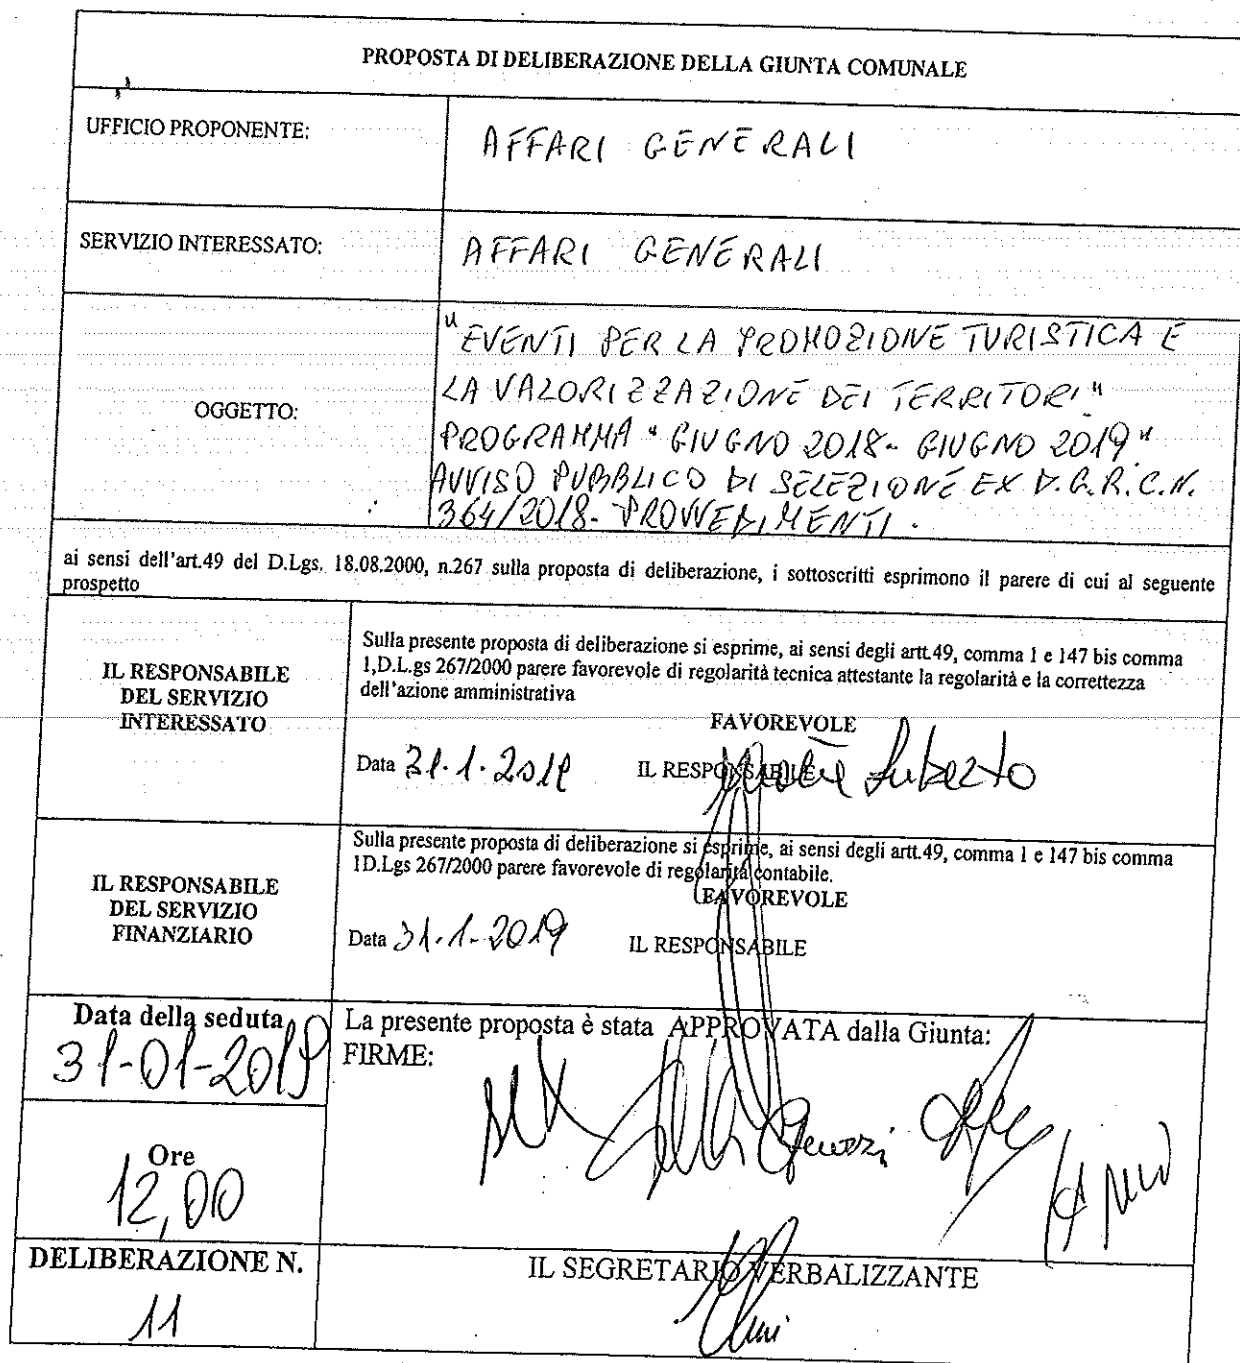 PROPOSTA DI DELIBERAZIONE DELLA GIUNTA COMUNALE
UFFICIO PROPONENTE:
AFFARI GENERALI
SERVIZIO INTERESSATO:
AFFARI GENERALI
OGGETTO:
"EVENTI PER LA PROMOZIONE TURISTICA E
LA VALORIZZAZIONE DEI TERRITORI"
PROGRAMMA "GIUGNO 2018- GIUGNO 2019"
AVVISO PUBBLICO DI SELEZIONE EX D.G.R.C.N.
364/2018- PROVVEDIMENTI.
ai sensi dell'art.49 del D.Lgs. 18.08.2000, n.267 sulla proposta di deliberazione, i sottoscritti esprimono il parere di cui al seguente
prospetto
IL RESPONSABILE
DEL SERVIZIO
INTERESSATO
Sulla presente proposta di deliberazione si esprime, ai sensi degli artt.49, comma 1 e 147 bis comma
1,D.L.gs 267/2000 parere favorevole di regolarità tecnica attestante la regolarità e la correttezza
dell'azione amministrativa
FAVOREVOLE
Data 31.1.2019 IL RESPONSABILE
IL RESPONSABILE
DEL SERVIZIO
FINANZIARIO
Sulla presente proposta di deliberazione si esprime, ai sensi degli artt.49, comma 1 e 147 bis comma
1D.Lgs 267/2000 parere favorevole di regolarità contabile.
FAVOREVOLE
Data 31.1.2019 IL RESPONSABILE
Data della seduta
31-01-2019
La presente proposta è stata APPROVATA dalla Giunta:
FIRME:
Ore
12,00
DELIBERAZIONE N.
11
IL SEGRETARIO VERBALIZZANTE